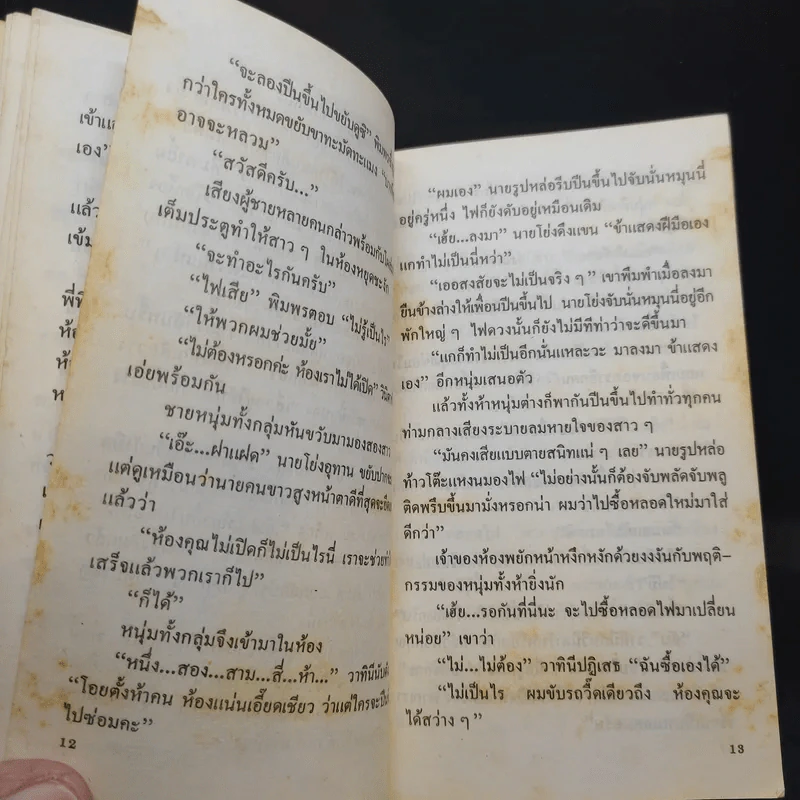 เข้าแส
เอง”
แล้ว
เข้ม
พี่พิ
ห้อ
ห้อ
“จะลองปีนขึ้นไปขยับดูซิ” พิมพร
กว่าใครทั้งหมดขยับขาทะมัดทะแมง
อาจจะหลวม”
“สวัสดีครับ...”
เสียงผู้ชายหลายคนกล่าวพร้อมกับ
เต็มประตูทำให้สาว ๆ ในห้องหยุดชะงัก
“จะทำอะไรกันครับ”
“ไฟเสีย” พิมพรตอบ “ไม่รู้เป็นไร”
“ให้พวกผมช่วยมั้ย”
“ไม่ต้องหรอกค่ะ ห้องเราไม่ได้เปิด”
เอ่ยพร้อมกัน
ชายหนุ่มทั้งกลุ่มหันขวับมามองสองสาว
“เอ๊ะ...ฝาแฝด” นายโย่งอุทาน ขยับปาก
แต่ดูเหมือนว่านายคนขาวสูงหน้าตาดีที่สุดจะ
แล้วว่า
“ห้องคุณไม่เปิดก็ไม่เป็นไรนี่ เราจะช่วย
เสร็จแล้วพวกเราก็ไป”
“ก็ได้”
หนุ่มทั้งกลุ่มจึงเข้ามาในห้อง
“หนึ่ง...สอง...สาม...สี่...ห้า...” วาทินีนับ
“โอยตั้งห้าคน ห้องแน่นเอี๊ยดเชียว ว่าแต่ใครจะปีน
ไปซ่อมคะ”
12
“ผมเอง” นายรูปหล่อรีบปีนขึ้นไปจับนั่นหมุนนี่
อยู่ครู่หนึ่ง ไฟก็ยังดับอยู่เหมือนเดิม
“เฮ้ย...ลงมา” นายโย่งดึงแขน “ข้าแสดงฝีมือเอง
แกทำไม่เป็นนี่หว่า”
“เออสงสัยจะไม่เป็นจริง ๆ” เขาพึมพำเมื่อลงมา
ยืนข้างล่างให้เพื่อนปีนขึ้นไป นายโย่งจับนั่นหมุนนี่อยู่อีก
พักใหญ่ ๆ ไฟดวงนั้นก็ยังไม่มีทีท่าว่าจะดีขึ้นมา
“แกก็ทำไม่เป็นอีกนั่นแหละวะ มาลงมา ข้าแสดง
เอง” อีกหนุ่มเสนอตัว
แล้วทั้งห้าหนุ่มต่างก็พากันปีนขึ้นไปทำทั่วทุกคน
ท่ามกลางเสียงระบายลมหายใจของสาว ๆ
“มันคงเสียแบบตายสนิทแน่ ๆ เลย” นายรูปหล่อ
ท้าวโต๊ะแหงนมองไฟ “ไม่อย่างนั้นก็ต้องจับพลัดจับพลู
ติดพรึบขึ้นมามั่งหรอกน่า ผมว่าไปซื้อหลอดใหม่มาใส่
ดีกว่า”
เจ้าของห้องพยักหน้าหงึกหงักด้วยงงงันกับพฤติ-
กรรมของหนุ่มทั้งห้ายิ่งนัก
“เฮ้ย...รอกันที่นี่นะ จะไปซื้อหลอดไฟมาเปลี่ยน
หน่อย” เขาว่า
“ไม่...ไม่ต้อง” วาทินีปฏิเสธ “ฉันซื้อเองได้”
“ไม่เป็นไร ผมขับรถวี๊ดเดียวถึง ห้องคุณจะ
ได้สว่าง ๆ”
13